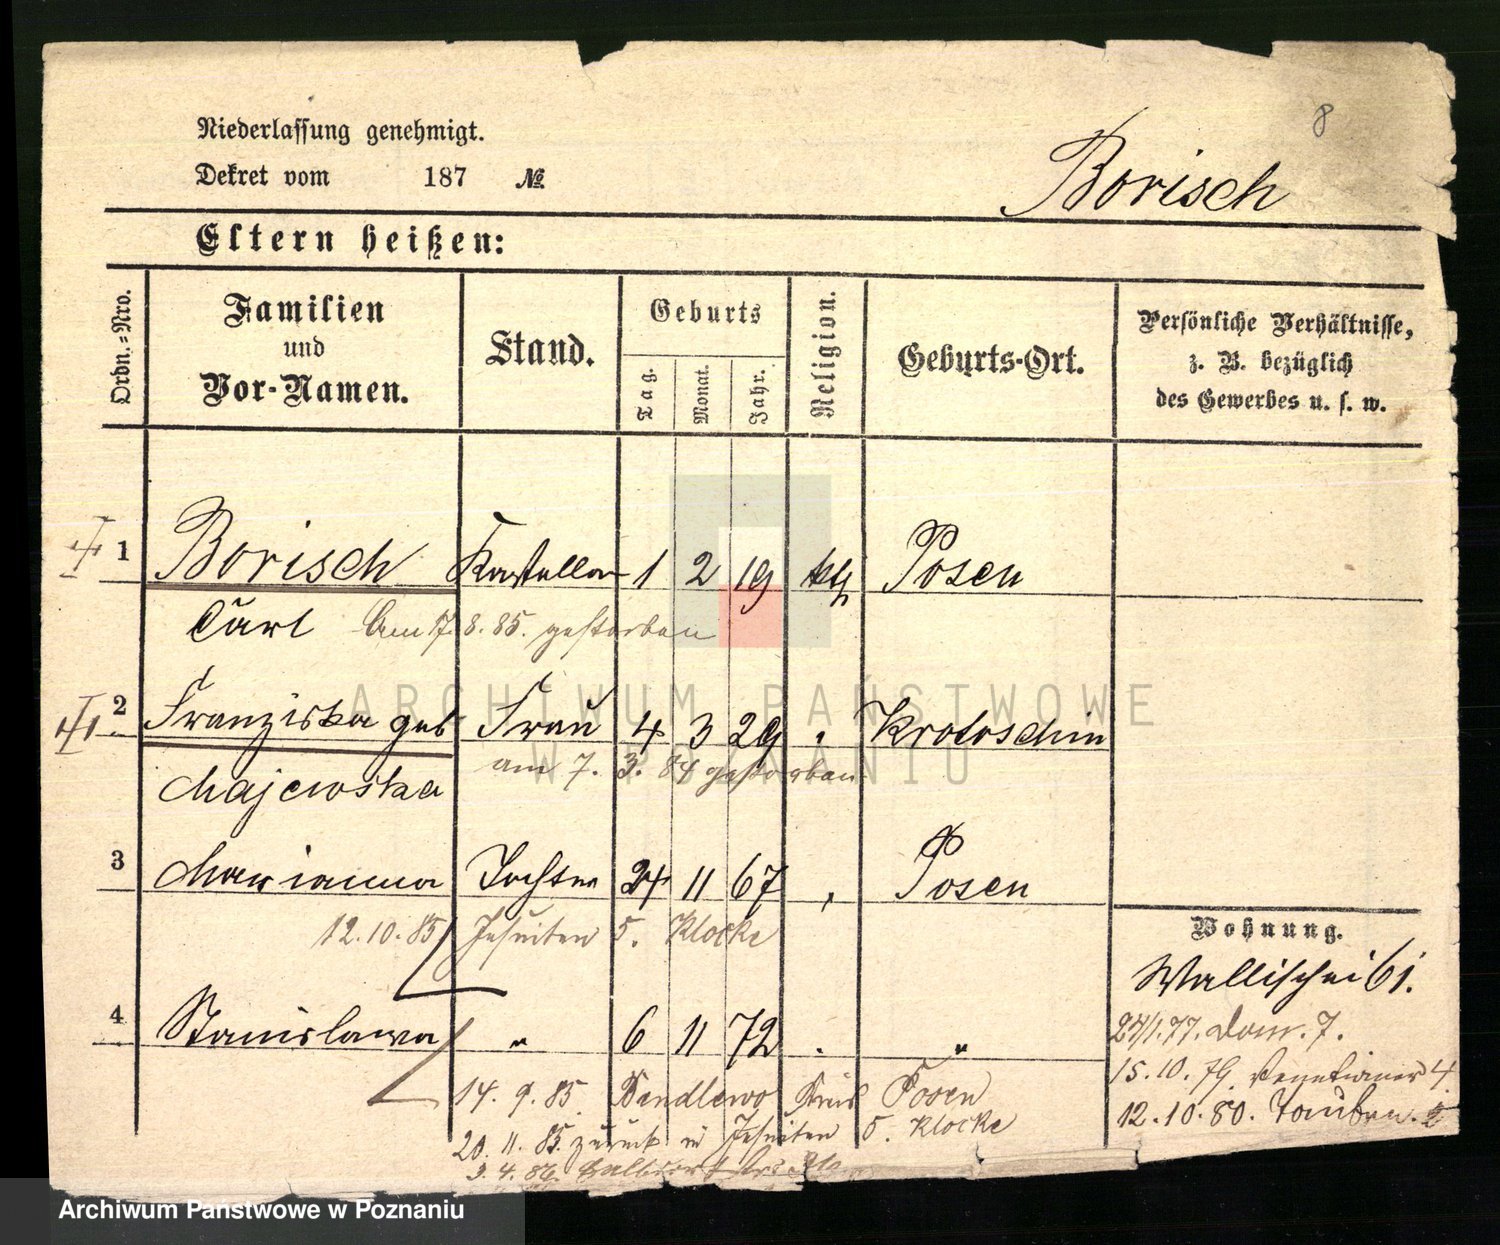 8
Niederlassung genehmigt.
Dekret vom 187 №
Borisch
Eltern heißen:
Ordn.-Nro.
Familien
und
Vor-Namen.
Stand.
Geburts
Tag.
Monat.
Jahr.
Religion.
Geburts-Ort.
Persönliche Verhältnisse,
z. B. bezüglich
des Gewerbes u. s. w.
1 Borisch Kastellan 1 2 19 kth Posen
Carl Am 17. 8. 85. gestorben
ARCHIWUM PAŃSTWOWE
W POZNANIU
2 Franziska geb Frau 4 3 29 " Krotoschin
am 7. 3. 84 gestorben
Majewska
3 Marianna Tochter 24 11 67 " Posen
12.10.85 Jesuiten 5. Klocke
Wohnung.
Wallischei 61.
4 Stanislawa " 6 11 72 " "
24/1.77. Dom. 7.
15.10.79. Venetianer 4.
14. 9. 85. Kreis Posen
12.10.80. Tauben. 2
20. 11. 85. zurück in Jesuiten 5. Klocke
3. 4. 86.
Archiwum Państwowe w Poznaniu